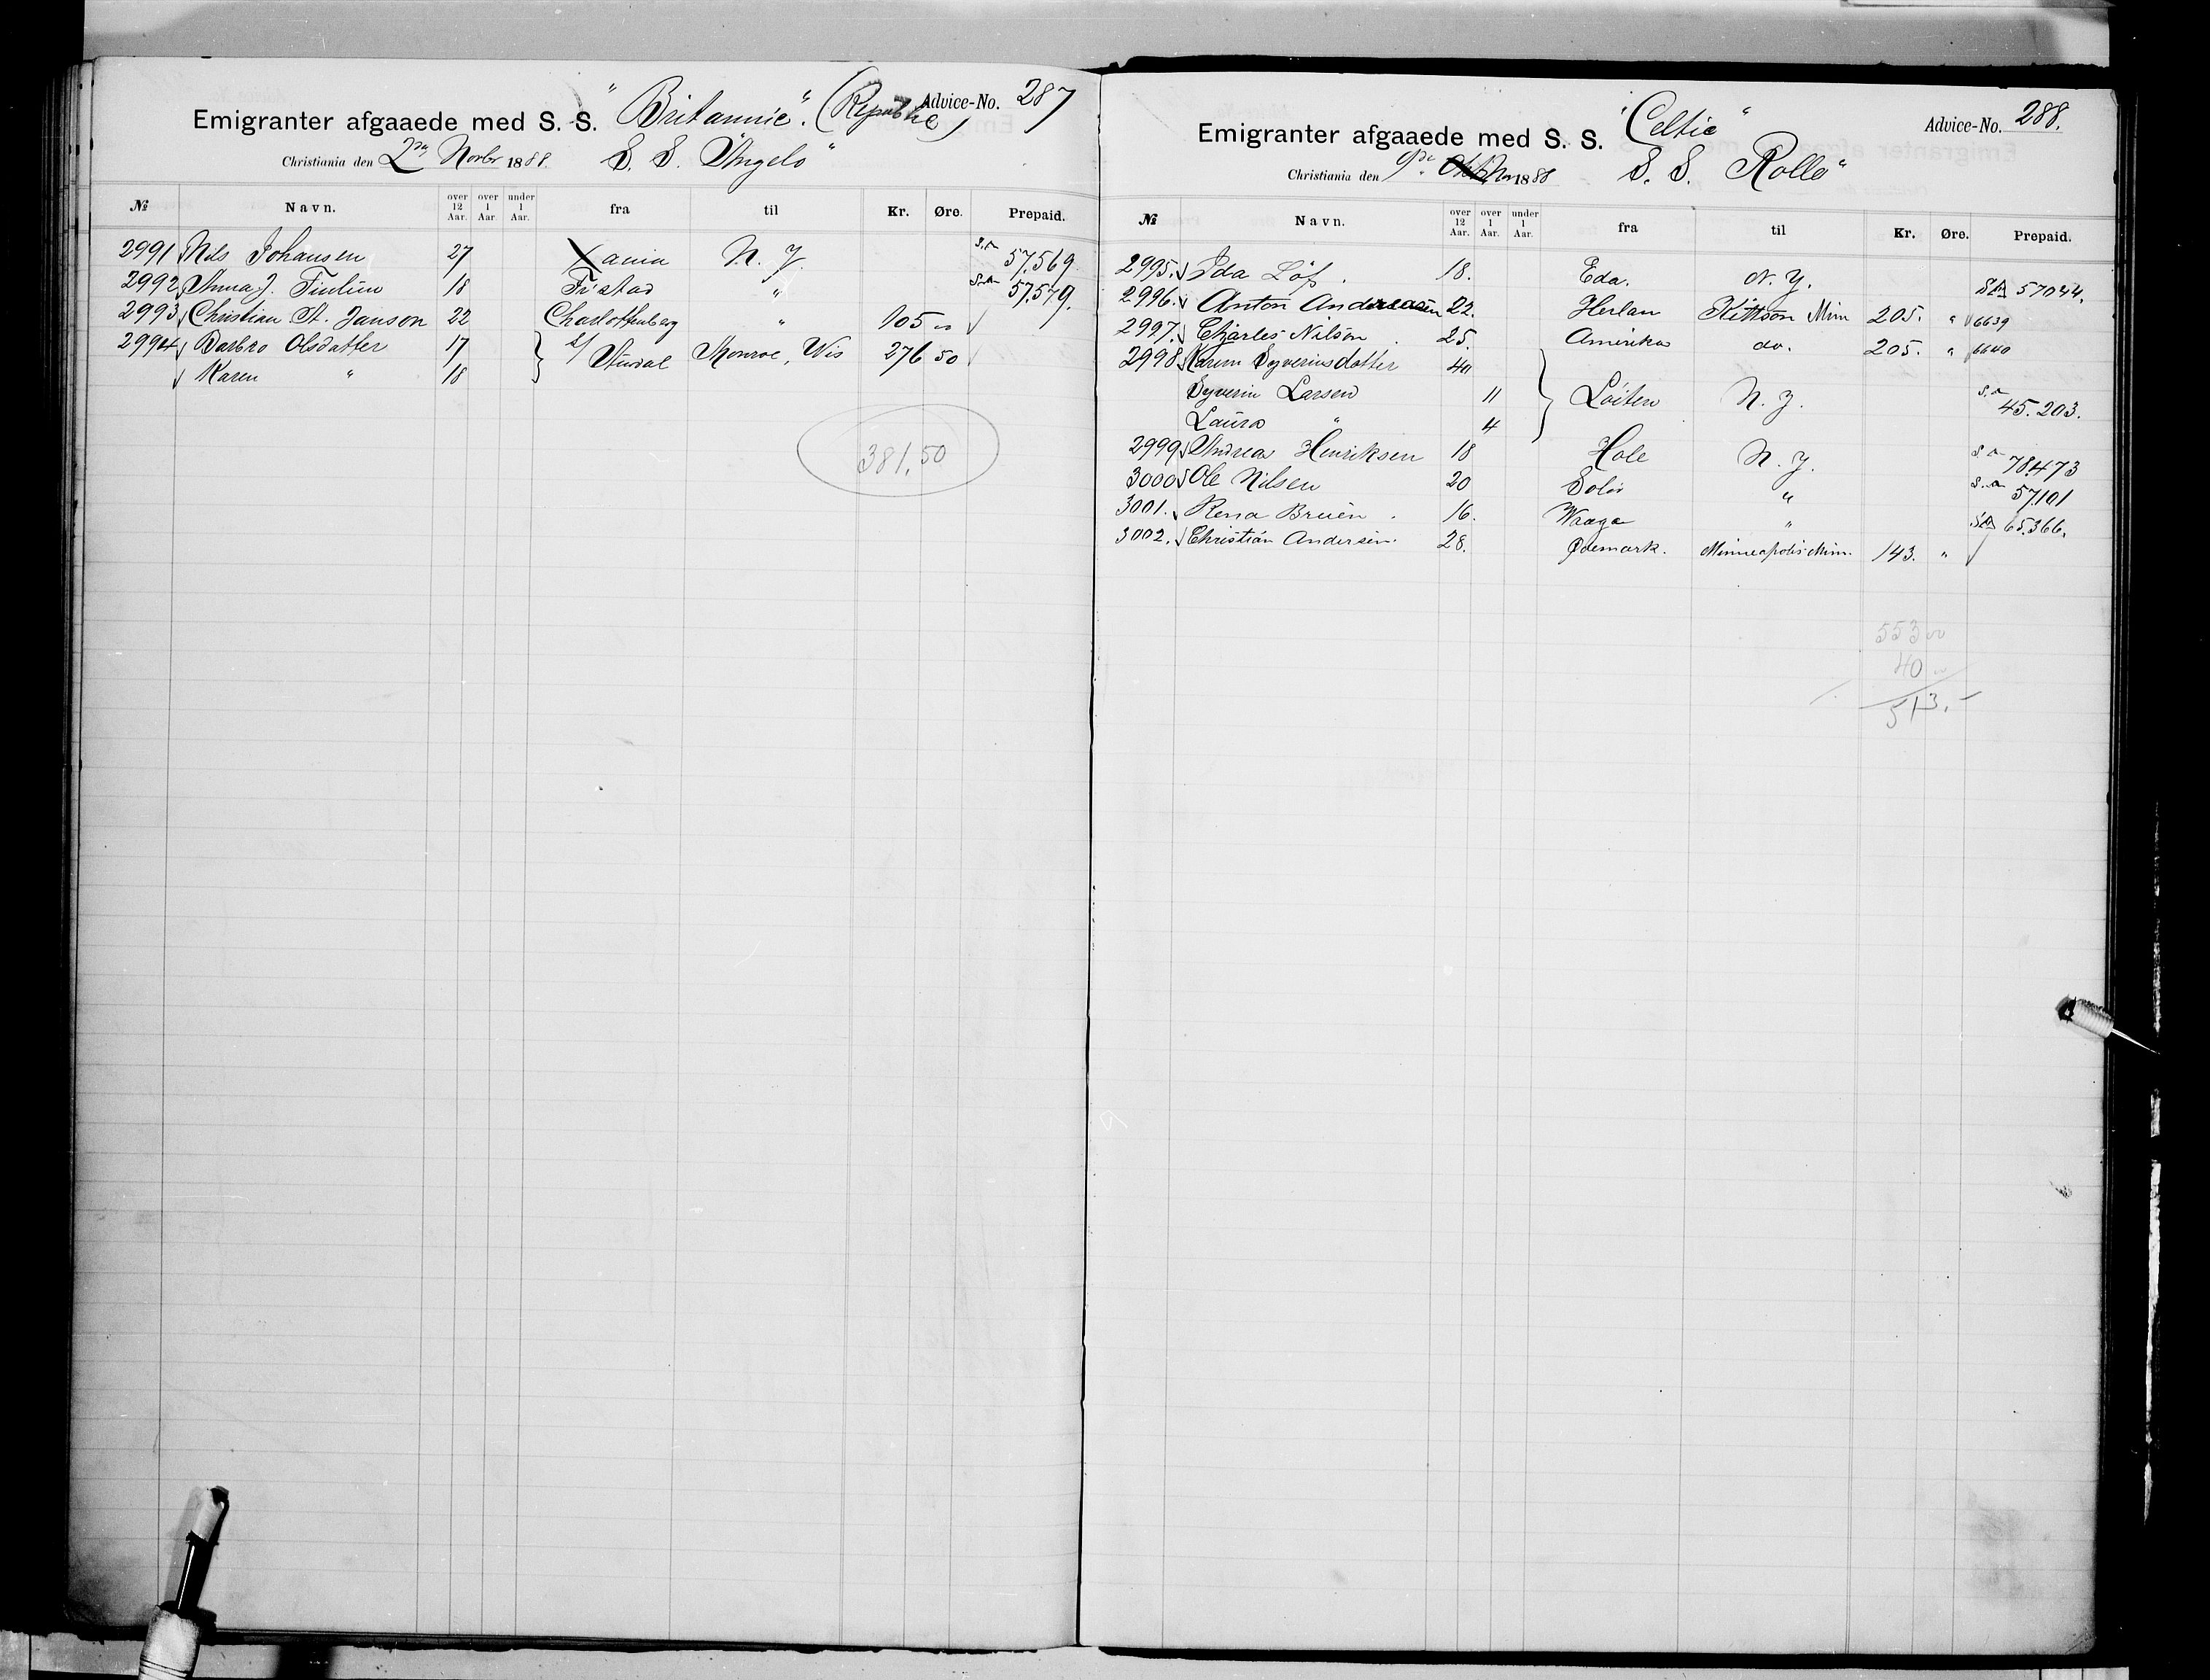 Emigranter afgaaede med S. S. "Britannic". (Republic) Advice-No. 287
Christiania den 2de Novbr 1888. S. S. "Angelo"
№ Navn. over 12 Aar. over 1 Aar. under 1 Aar. fra til Kr. Øre. Prepaid.
2991 Nils Johansen 27 Xania N. Y. S.A 57.569
2992 Anna J. 18 " S.A 57.579.
2993 Christian St. Janson 22 Charlottenberg " 105 00
2994 Barbro Olsdatter 17 Monroe, Wis 276 50
Karen " 18
381,50
Emigranter afgaaede med S. S. "Celtic" Advice-No. 288.
Christiania den 9de Nov 1888 S. S. Rollo"
№ Navn. over 12 Aar. over 1 Aar. under 1 Aar. fra til Kr. Øre. Prepaid.
2995. Ida Löf. 18. Eda. N. Y. SA 57044.
2996. Anton Andreasen 22. Herlan Kittson Min 205. " 6639
2997. Charles Nilson 25. Amerika do. 205. " 6640
2998 Karen Syverinsdatter 40
Syverin Larsen 11 Löiten N. Y. S.A 45.203.
Laura " 4
2999 Andrea Henriksen 18 Hole N. Y. S.A 78.473
3000 Ole Nilsen 20 Solör " S.A 57.101
3001. Rena Breien 16. Waage " SA 65.366.
3002. Christian Andersen. 28. Ødemark. Minneapolis Minn. 143. "
553 00
40
513.-